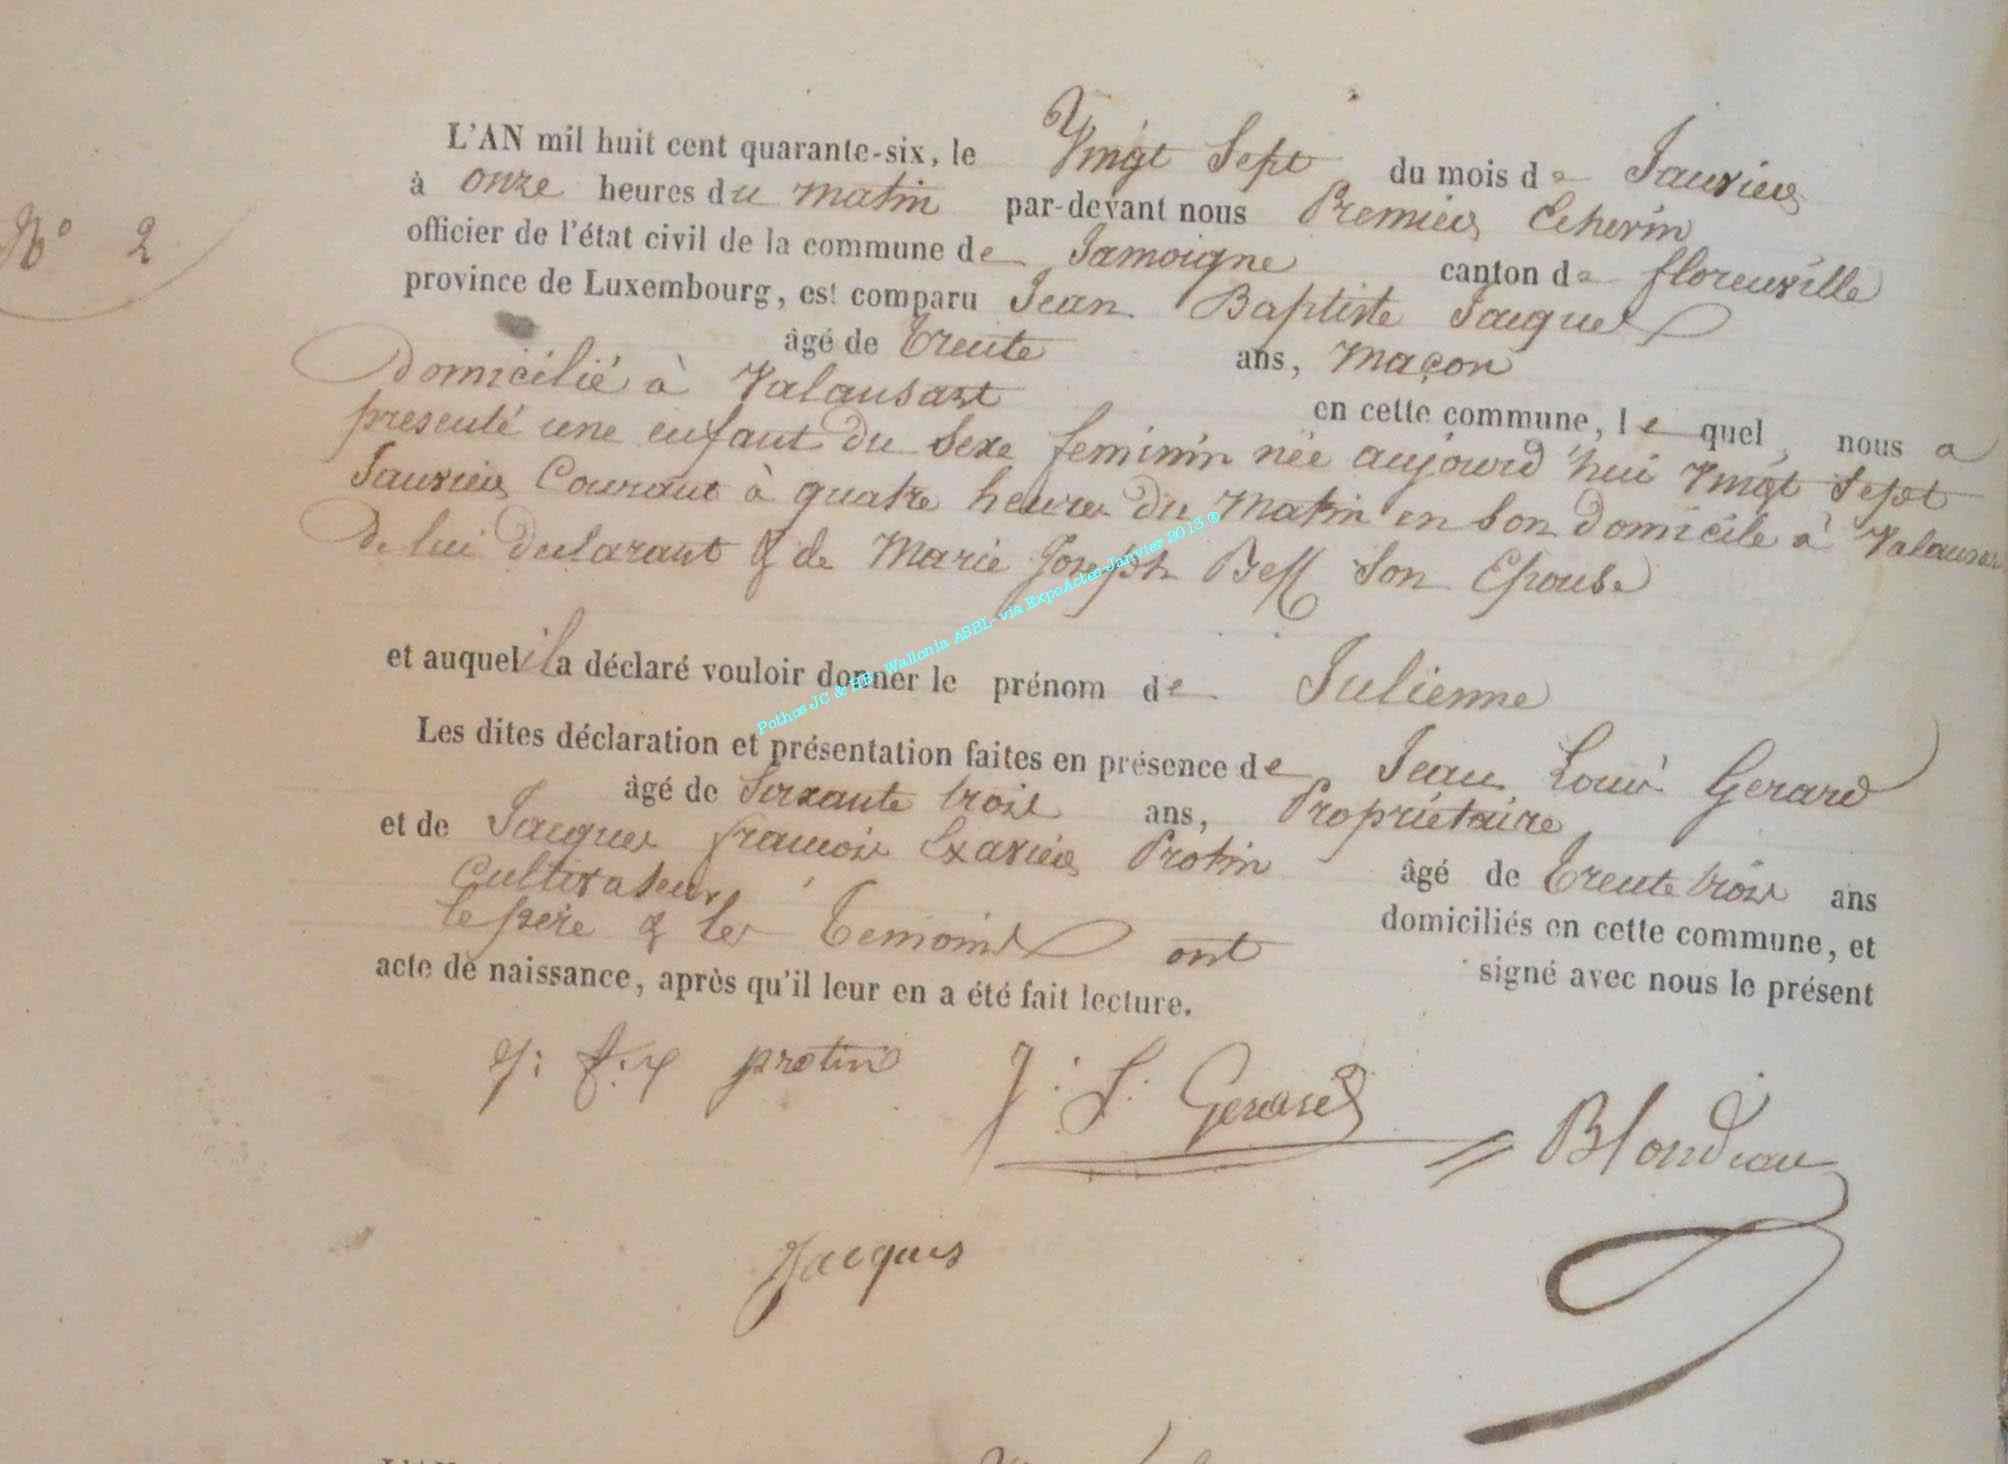 N° 2
L'AN mil huit cent quarante-six, le Vingt Sept du mois de Janvier
à onze heures du matin par-devant nous Premier Echevin
officier de l'état civil de la commune de Jamoigne canton de florenville
province de Luxembourg, est comparu Jean Baptiste Jacques
âgé de Trente ans, maçon
domicilié à Valansart en cette commune, lequel, nous a
presenté une enfant du Sexe feminin née aujourd'hui Vingt Sept
Janvier Courant à quatre heures du matin en Son domicile à Valansart
De lui declarant & de Marie Joseph Son Epouse
et auquel il a déclaré vouloir donner le prénom de Julienne
Les dites déclaration et présentation faites en présence de Jean Louis Gerard
âgé de Soixante trois ans, Propriétaire
et de Jacques francois Xavier Protin âgé de Trente trois ans
Cultivateur, domiciliés en cette commune, et
le père & les Temoins ont signé avec nous le présent
acte de naissance, après qu'il leur en a été fait lecture.
j: f: x protin J: L: Gerard Blondiau
Jacques
Pothos JC & Wallonia ASBL- via ExpoActes Janvier 2013 ®